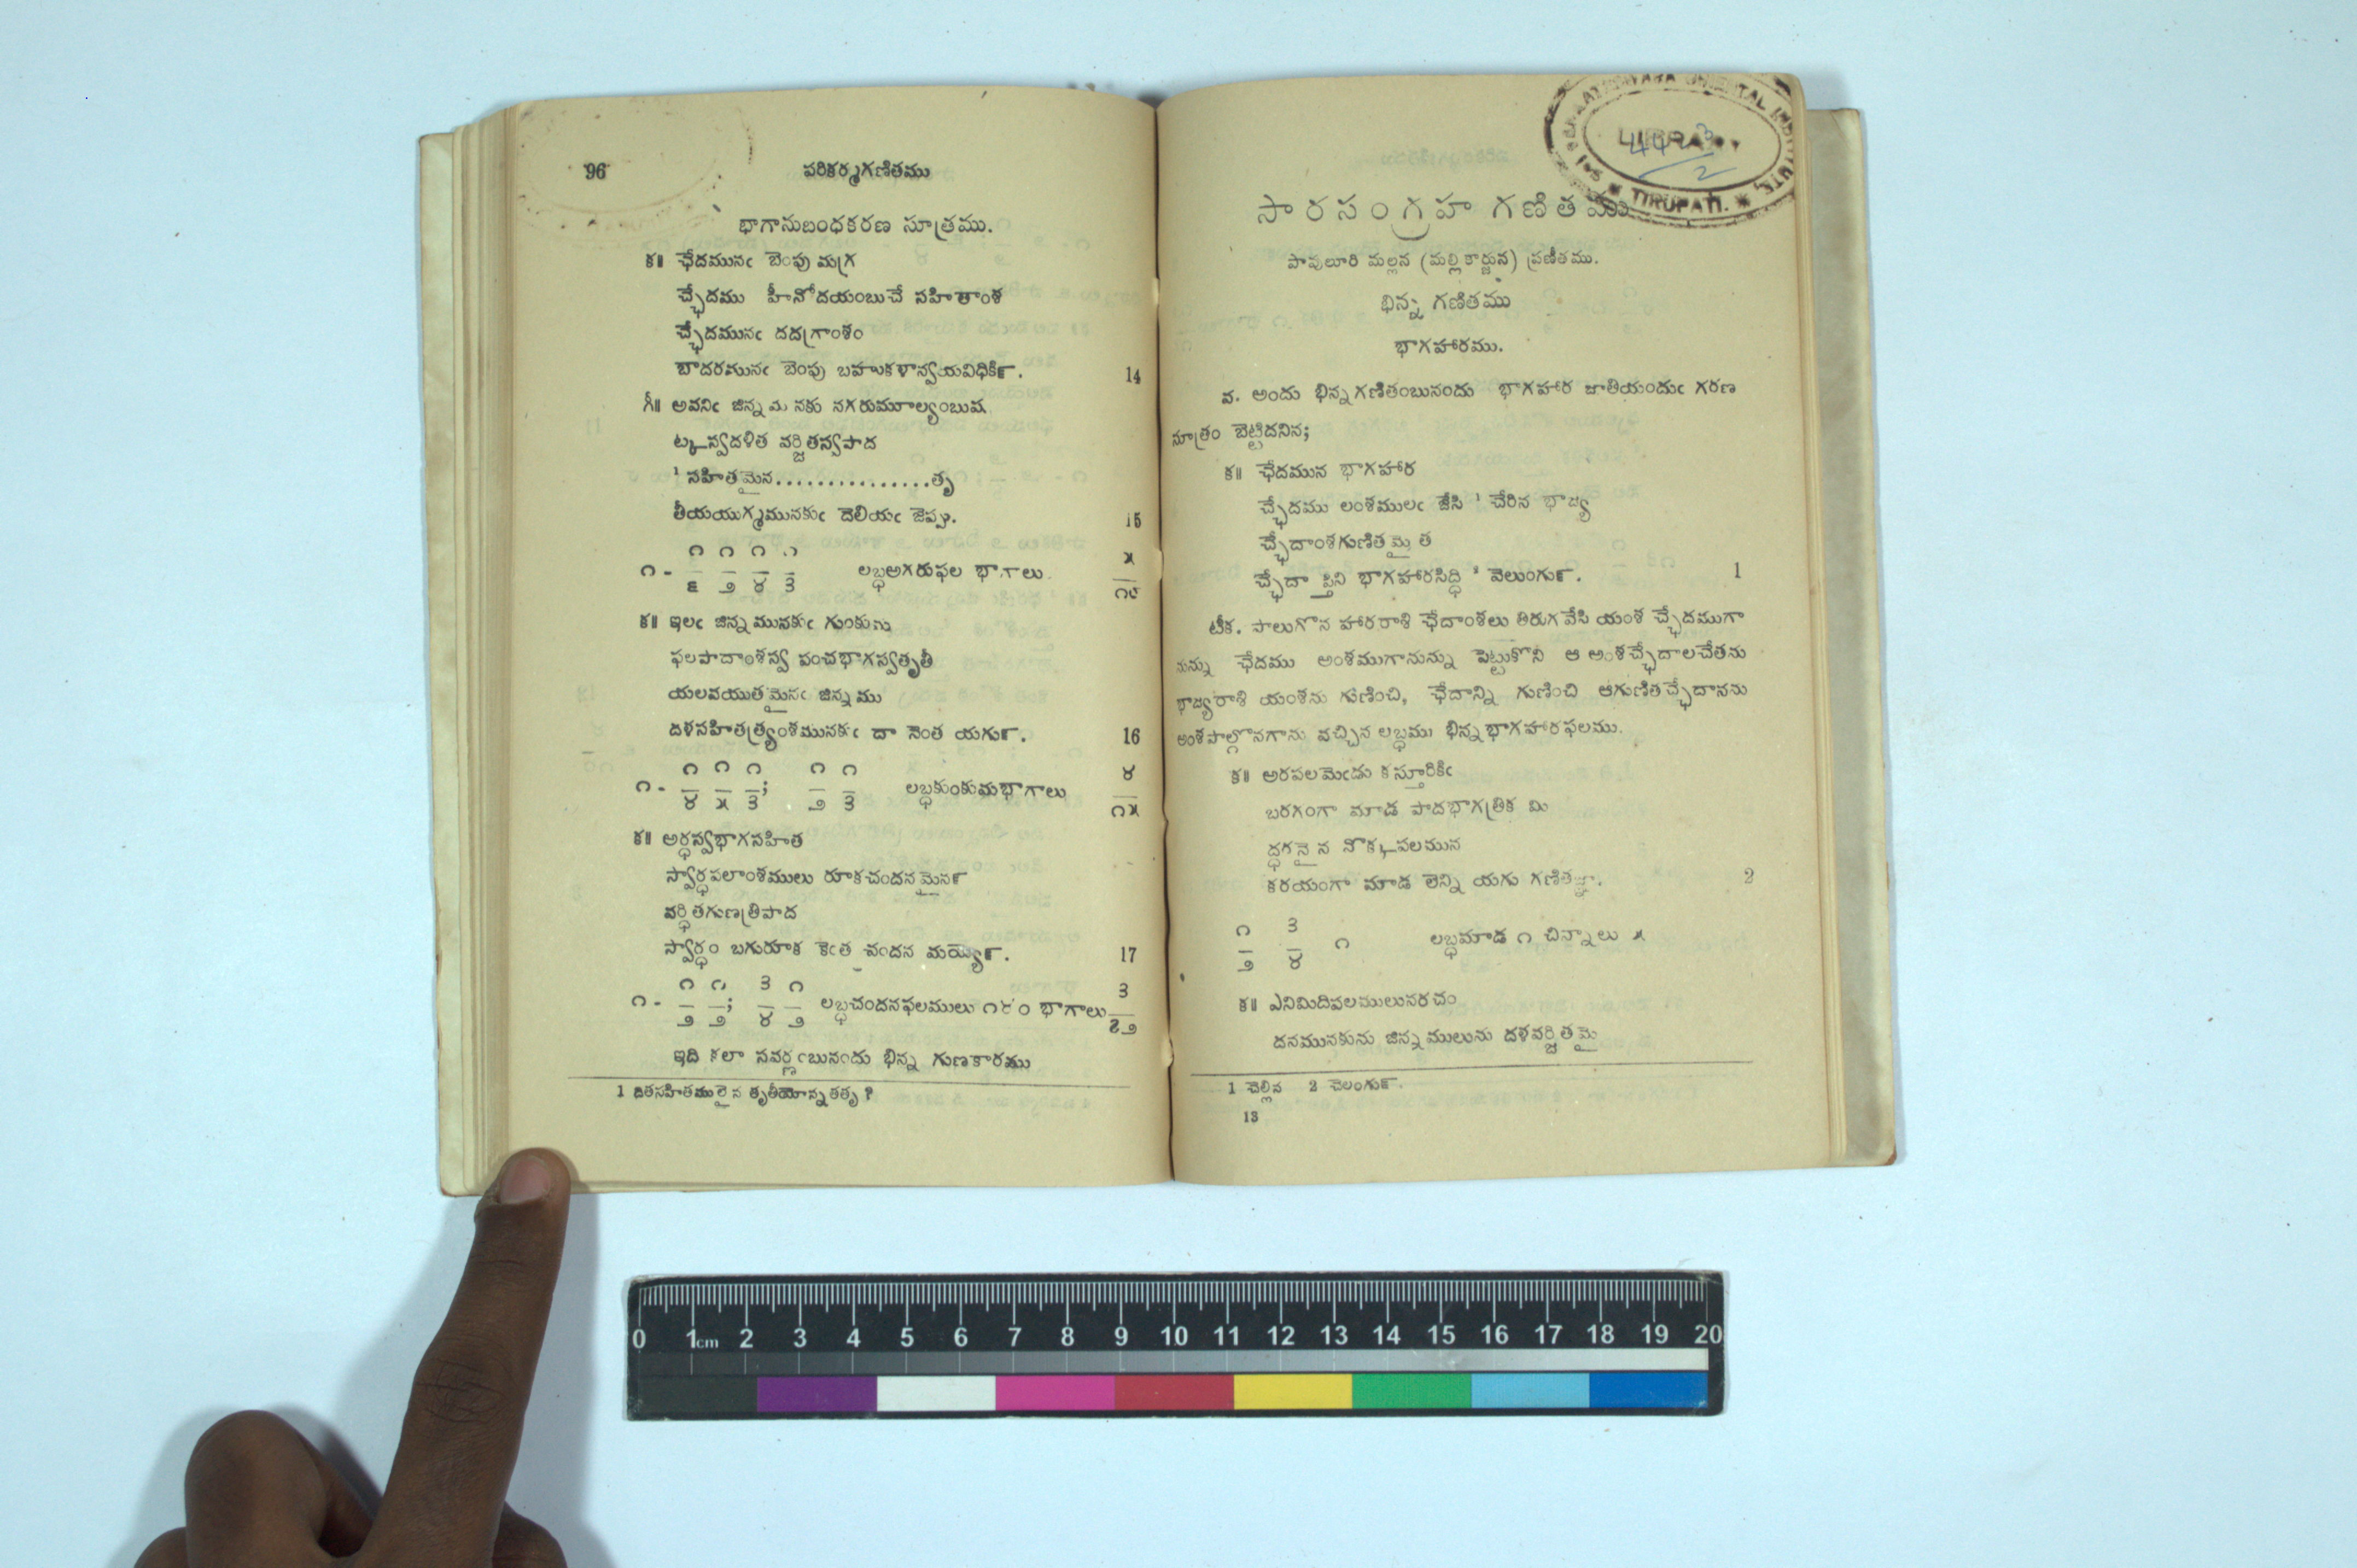 96
పరికర్మగణితము
భాగానుబంధకరణ సూత్రము.
క॥ ఛేదమునఁ బెంపు మగ్ర
చ్ఛేదము హీనోదయంబుచే సహితాంశ
చ్ఛేదమునఁ దదగ్రాంశం
బాదరమునఁ బెంపు బహుకళాన్వయవిధికిఁ. 14
గీ॥ అవనిఁ జిన్నమునకు నగరుమూల్యంబుష
ట్కస్వదళిత వర్జితస్వపాద
¹ సహితమైన...............తృ
తీయయుగ్మమునకుఁ దెలియఁ జెప్పు. 15
౧ - ౧ ౧ ౧ ౧
౬ ౨ ౪ ౩ లబ్ధఅగరుఫల భాగాలు
క॥ ఇలఁ జిన్నమునకుఁ గుంకుము
ఫలపాదాంశస్వ పంచభాగస్వతృతీ
యలవయుతమైనఁ జిన్నము
దళసహితత్ర్యంశమునకుఁ దా నెంత యగుఁ. 16
౧ - ౧ ౧ ౧ ; ౧ ౧ ౪
౪ ౫ ౩ ౨ ౩ లబ్ధకుంకుమభాగాలు ౧౫
క॥ అర్ధస్వభాగసహిత
స్వార్ధపలాంశములు రూకచందనమైనఁ
వర్ధితగుణత్రిపాద
స్వార్ధం బగురూక కెంత చందన మయ్యెఁ. 17
౧ - ౧ ౧ ; ౩ ౧ ౩
౨ ౨ ౪ ౨ లబ్ధచందనఫలములు ౧౪౦ భాగాలు
ఇది కలా సవర్ణంబునందు భిన్న గుణకారము
1 దితసహితములైన తృతీయోన్నతతృ ?
LIBRARY
TIRUPATI.
సారసంగ్రహ గణితము
పావులూరి మల్లన (మల్లికార్జున) ప్రణీతము.
భిన్న గణితము
భాగహారము.
వ. అందు భిన్నగణితంబునందు భాగహార జాతియందుఁ గరణ
సూత్రం బెట్టిదనిన;
క॥ ఛేదమున భాగహార
చ్ఛేదము లంశములఁ జేసి ¹ చేరిన భాజ్య
చ్ఛేదాంశగుణితమై త
చ్ఛేదా ప్తిని భాగహారసిద్ధి ² వెలుంగుఁ. 1
టీక. పాలుగొన హారరాశి ఛేదాంశలు తిరుగవేసి యంశ చ్ఛేదముగా
నున్ను ఛేదము అంశముగానున్ను పెట్టుకొని ఆ అంశచ్ఛేదాలచేతను
భాజ్యరాశి యంశను గుణించి, ఛేదాన్ని గుణించి ఆగుణితచ్ఛేదానను
అంశపాల్గొనగాను వచ్చిన లబ్ధము భిన్నభాగహారఫలము.
క॥ అరపలమెఁడు కస్తూరికిఁ
బరగంగా మాడ పాదభాగత్రిక మి
ద్ధగనైన నొకపలమున
కరయంగా మాడ లెన్ని యగు గణితజ్ఞా. 2
౧ ౩
౨ ౪ ౧ లబ్ధమాడ ౧ చిన్నాలు ౫
క॥ ఎనిమిదిపలములునరచం
దనమునకును జిన్నములును దళవర్జితమై
1 చెల్లిన 2 చెలంగుఁ.
13
0 1cm 2 3 4 5 6 7 8 9 10 11 12 13 14 15 16 17 18 19 20